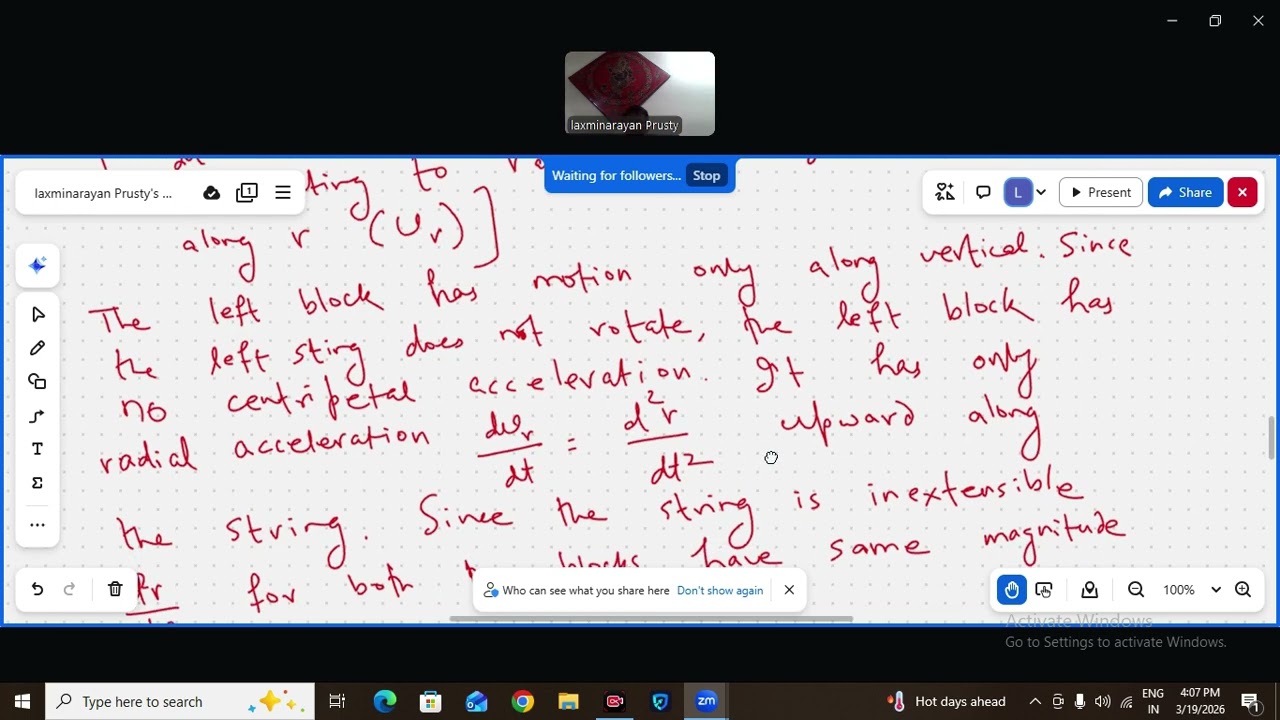 laxminarayan Prusty
Waiting for followers... Stop
laxminarayan Prusty's ...
L
Present
Share
ting to
along r (υr)]
The left block has motion only along vertical. Since
the left sting does not rotate, the left block has
no centripetal acceleration. It has only
radial acceleration dυr/dt = d²r/dt² upward along
the string. Since the string is inextensible
for both blocks have same magnitude
T
Σ
Who can see what you share here Don't show again
100%
Activate Windows
Go to Settings to activate Windows.
Type here to search
zm
Hot days ahead
ENG
IN
4:07 PM
3/19/2026